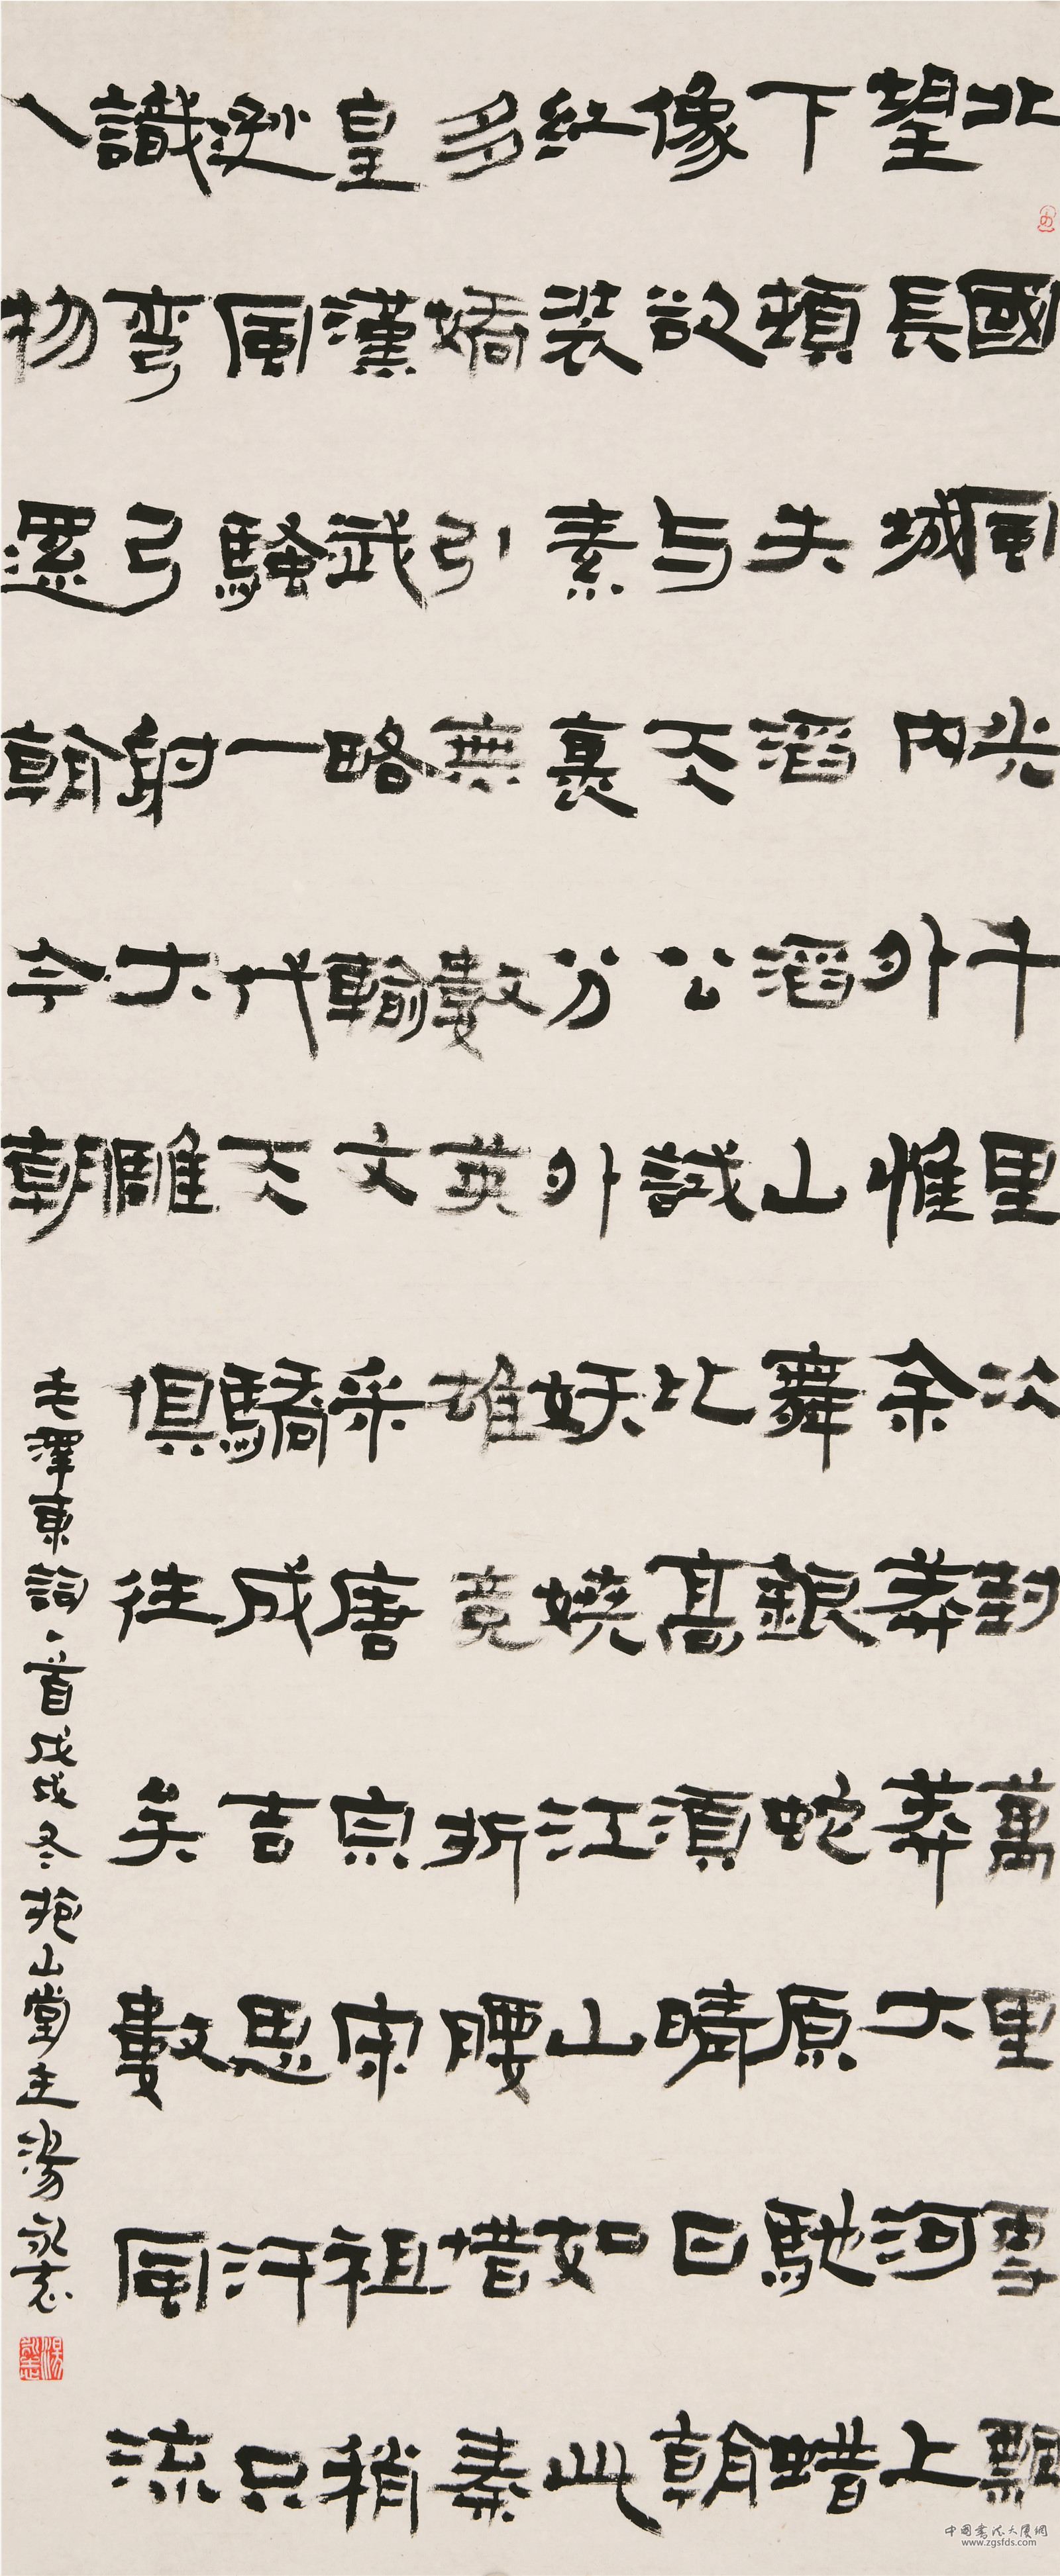 北國風光千里冰封萬里雪飄
望長城内外惟余莽莽大河上
下頓失滔滔山舞銀蛇原馳蜡
像欲与天公試比高須晴日看
紅裝素裹分外妖嬈江山如此
多嬌引無數英雄竞折腰惜秦
皇漢武略輸文采唐宗宋祖稍
逊風騷一代天驕成吉思汗只
識彎弓射大雕俱往矣數風流
人物還看今朝
毛澤東詞一首戊戌冬抱山堂主湯永志
中国书法大厦網
www.zgsfds.com